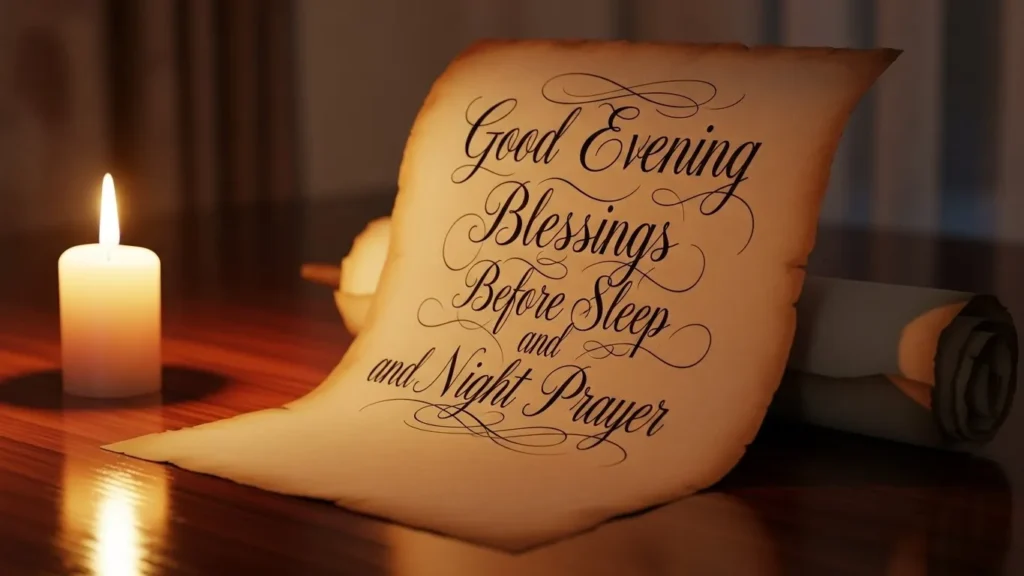 Good Evening
Blessings
Before Sleep
and
and Night Prayer